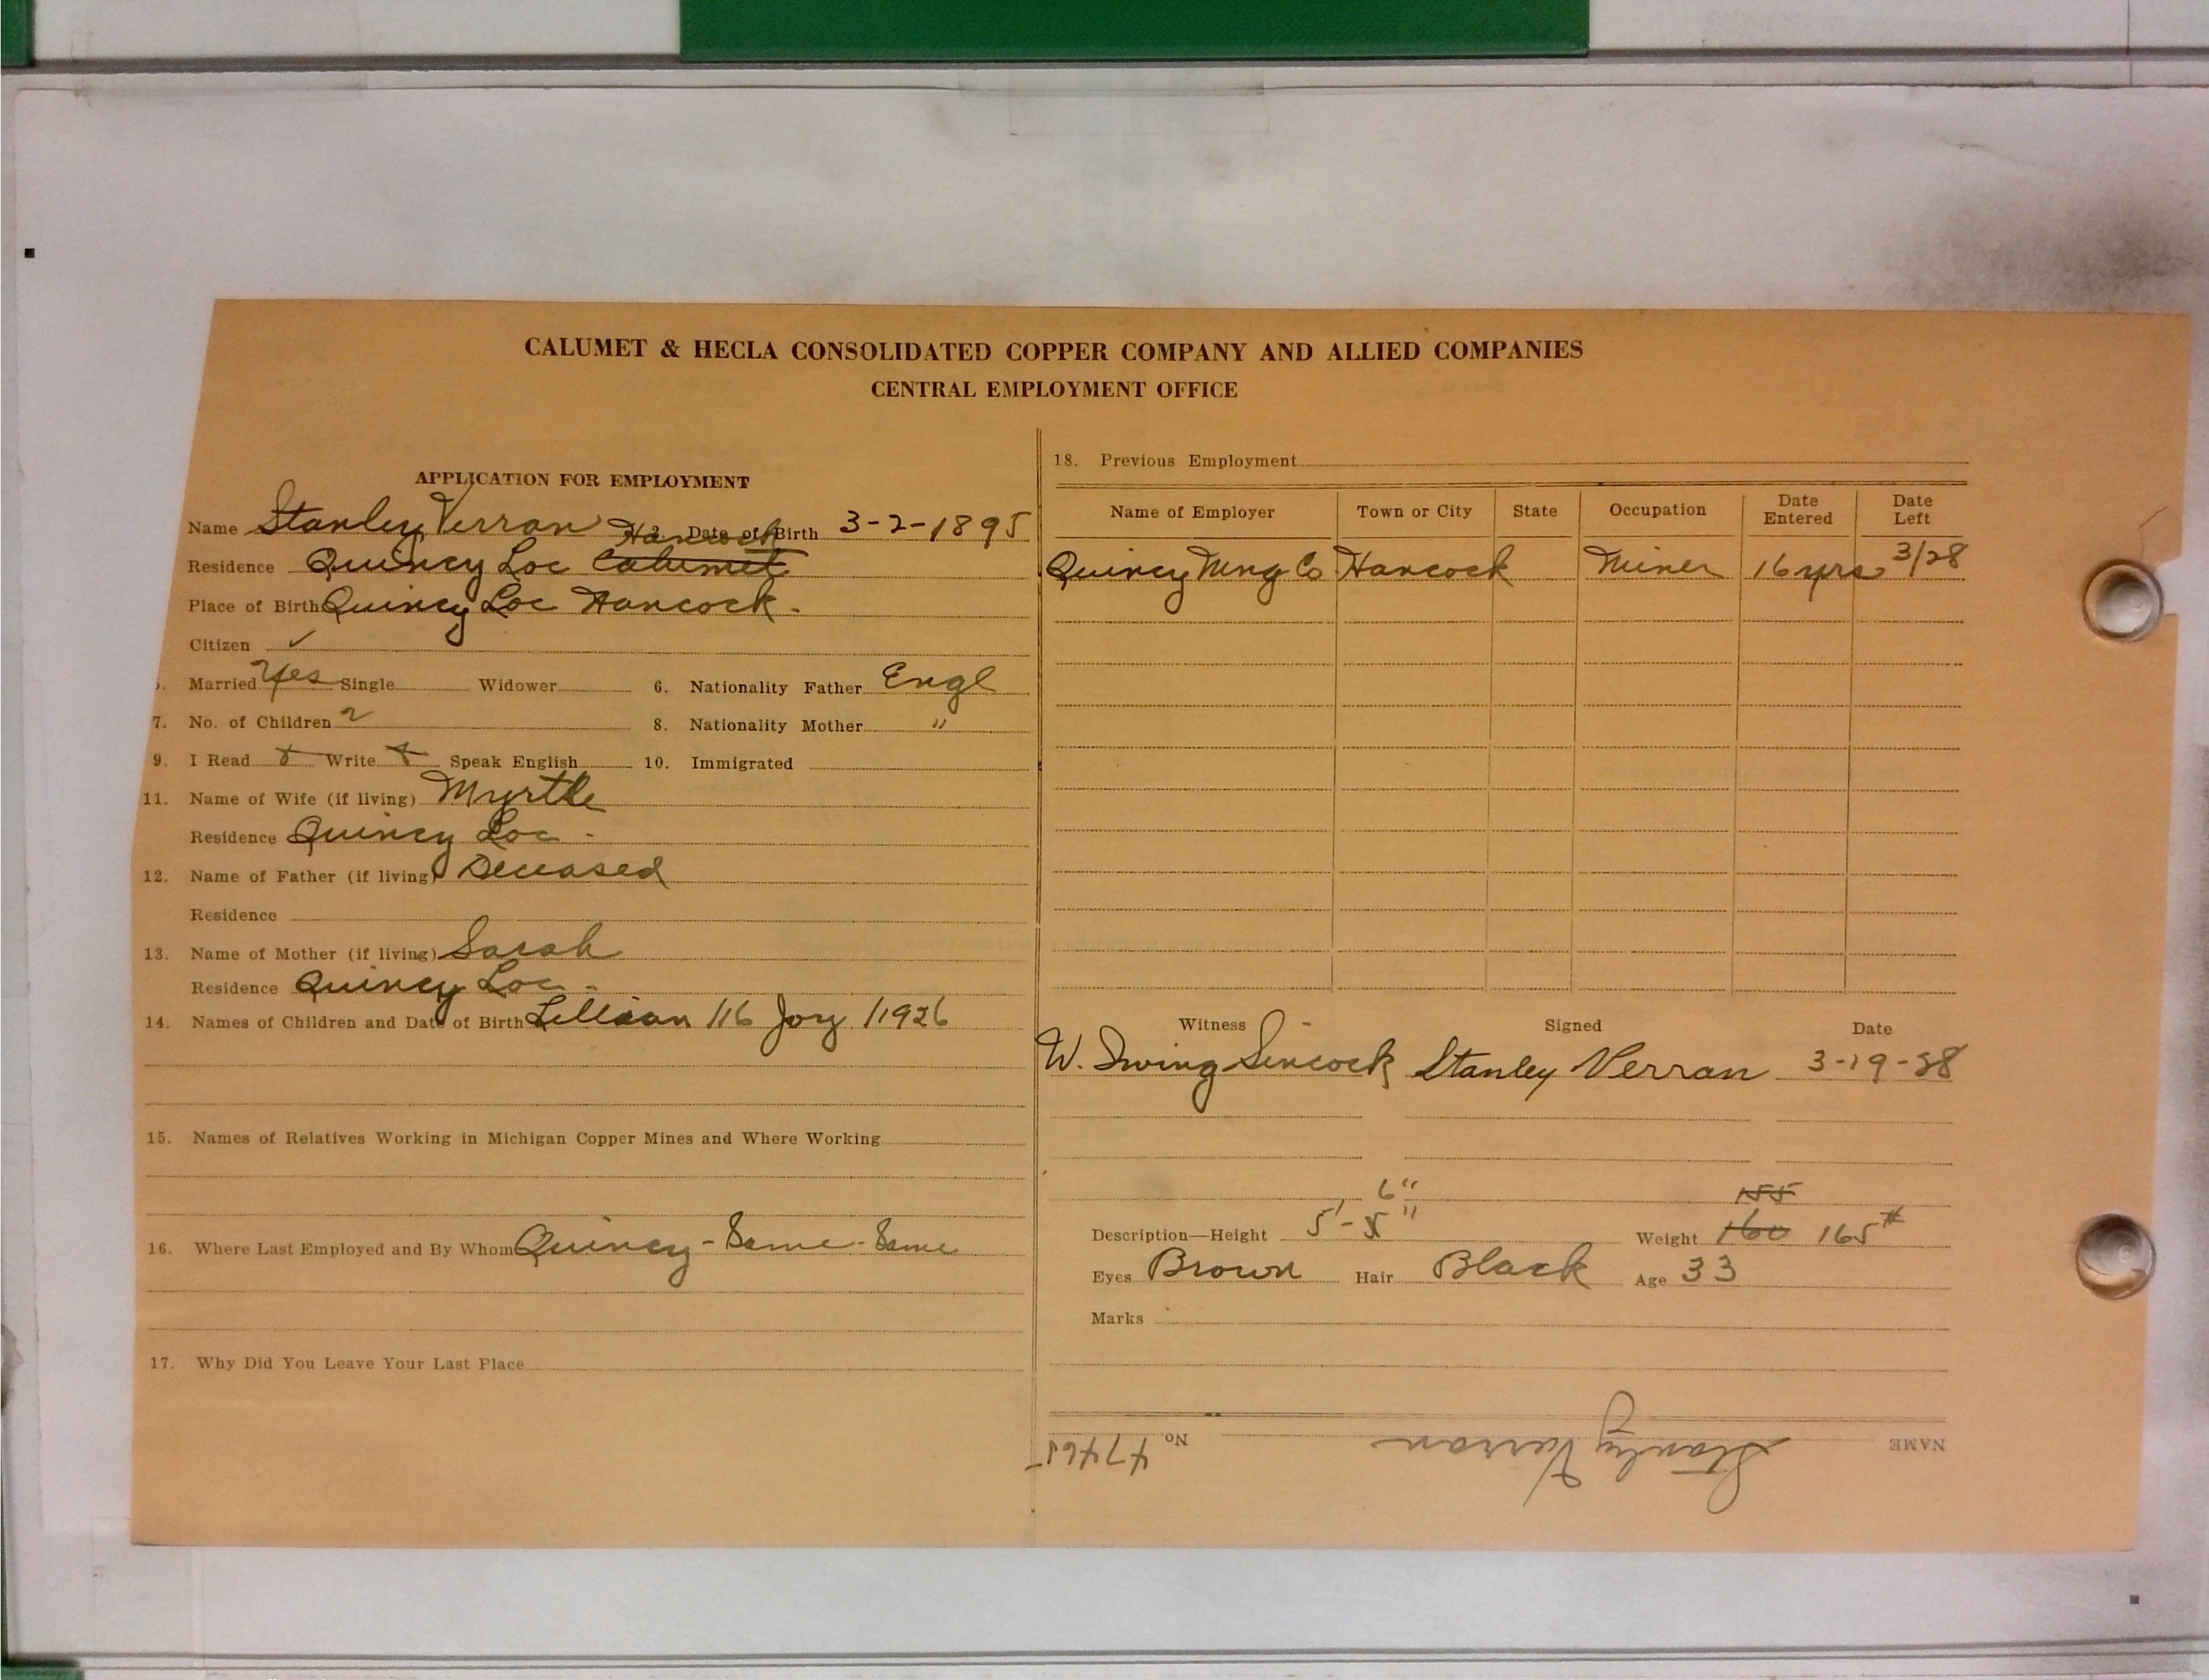 CALUMET & HECLA CONSOLIDATED COPPER COMPANY AND ALLIED COMPANIES
CENTRAL EMPLOYMENT OFFICE
APPLICATION FOR EMPLOYMENT
Name Stanley Verran 2. Date of Birth 3-2-1895
Hancock
Residence Quincy Loc Calumet
Place of Birth Quincy Loc Hancock.
Citizen ✓
Married Yes Single Widower 6. Nationality Father Engl
7. No. of Children 2 8. Nationality Mother "
9. I Read Write Speak English 10. Immigrated
11. Name of Wife (if living) Myrtle
Residence Quincy Loc -
12. Name of Father (if living) Deceased
Residence
13. Name of Mother (if living) Sarah
Residence Quincy Loc -
14. Names of Children and Date of Birth Lillian 116 Joy 11926
15. Names of Relatives Working in Michigan Copper Mines and Where Working
16. Where Last Employed and By Whom Quincy - Same - Same
17. Why Did You Leave Your Last Place
18. Previous Employment
Name of Employer Town or City State Occupation Date Entered Date Left
Quincy Mng Co Hancock Miner 16 yrs 3/28
Witness Signed Date
W. Irving Sincock Stanley Verran 3-19-28
6" 155
Description—Height 5'-5" Weight 160 165#
Eyes Brown Hair Black Age 33
Marks
NAME Stanley Verran No 47465